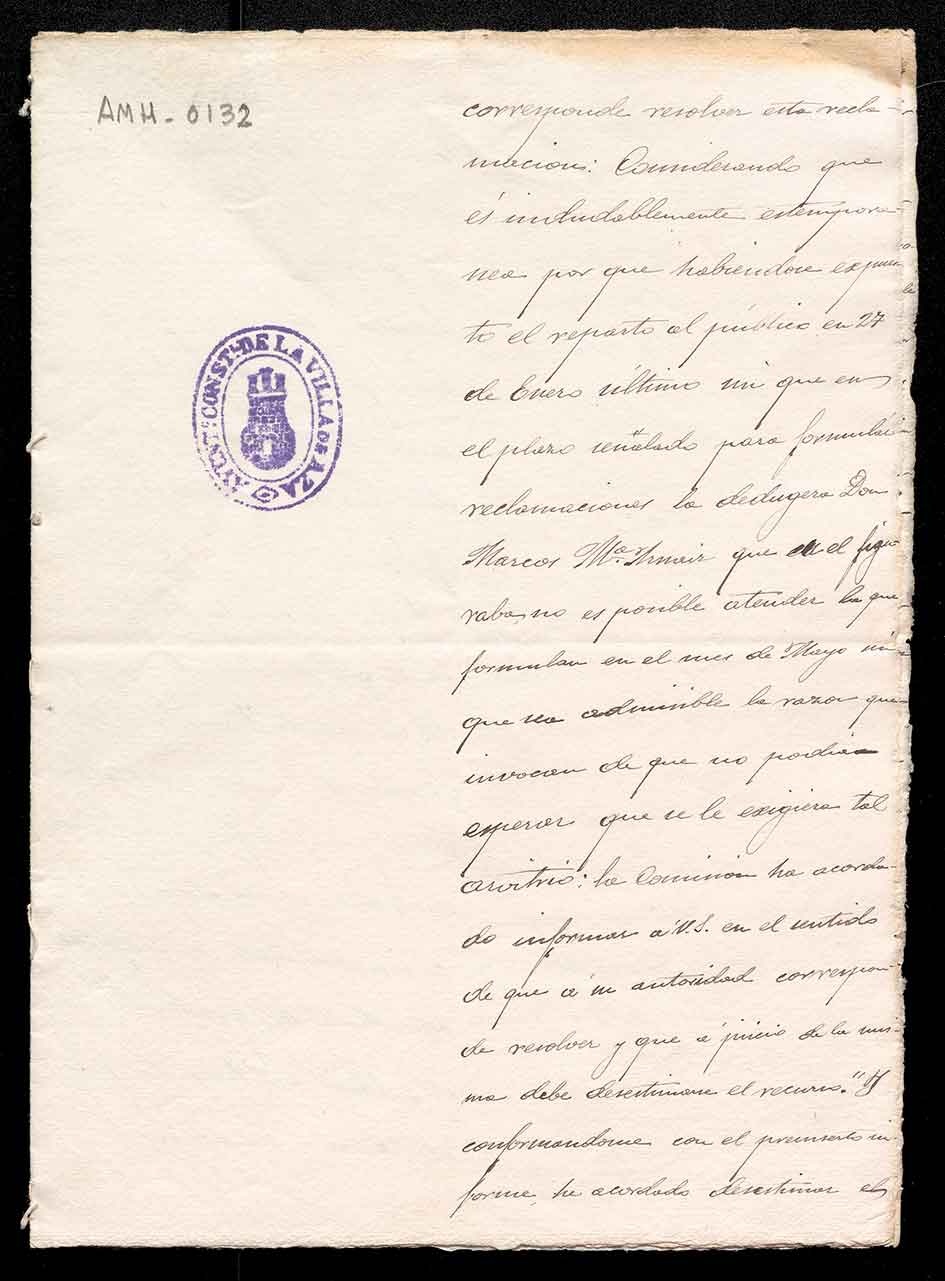 AMH-0132
AYUNTº CONSTL DE LA VILLA DE AZA
corresponde resolver esta recla-
macion: Considerando que
és indudablemente estempora-
nea por que habiendose expues
to el reparto al público en 27
de Enero último sin que en
el plazo señalado para formular
reclamaciones la dedugera Don
Marcos Mª que en el figu
raba, no es posible atender la que
formulan en el mes de Mayo sin
que sea admisible la razon que
invocan de que no podian
esperar que se le exigiera tal
arvitrio: la Comision ha acorda-
do informar á V.S. en el sentido
de que á su autoridad correspon-
de resolver y que á juicio de la mis-
ma debe desestimarse el recurso." Y
conformandome con el preinserto in-
forme, he acordado desestimar el